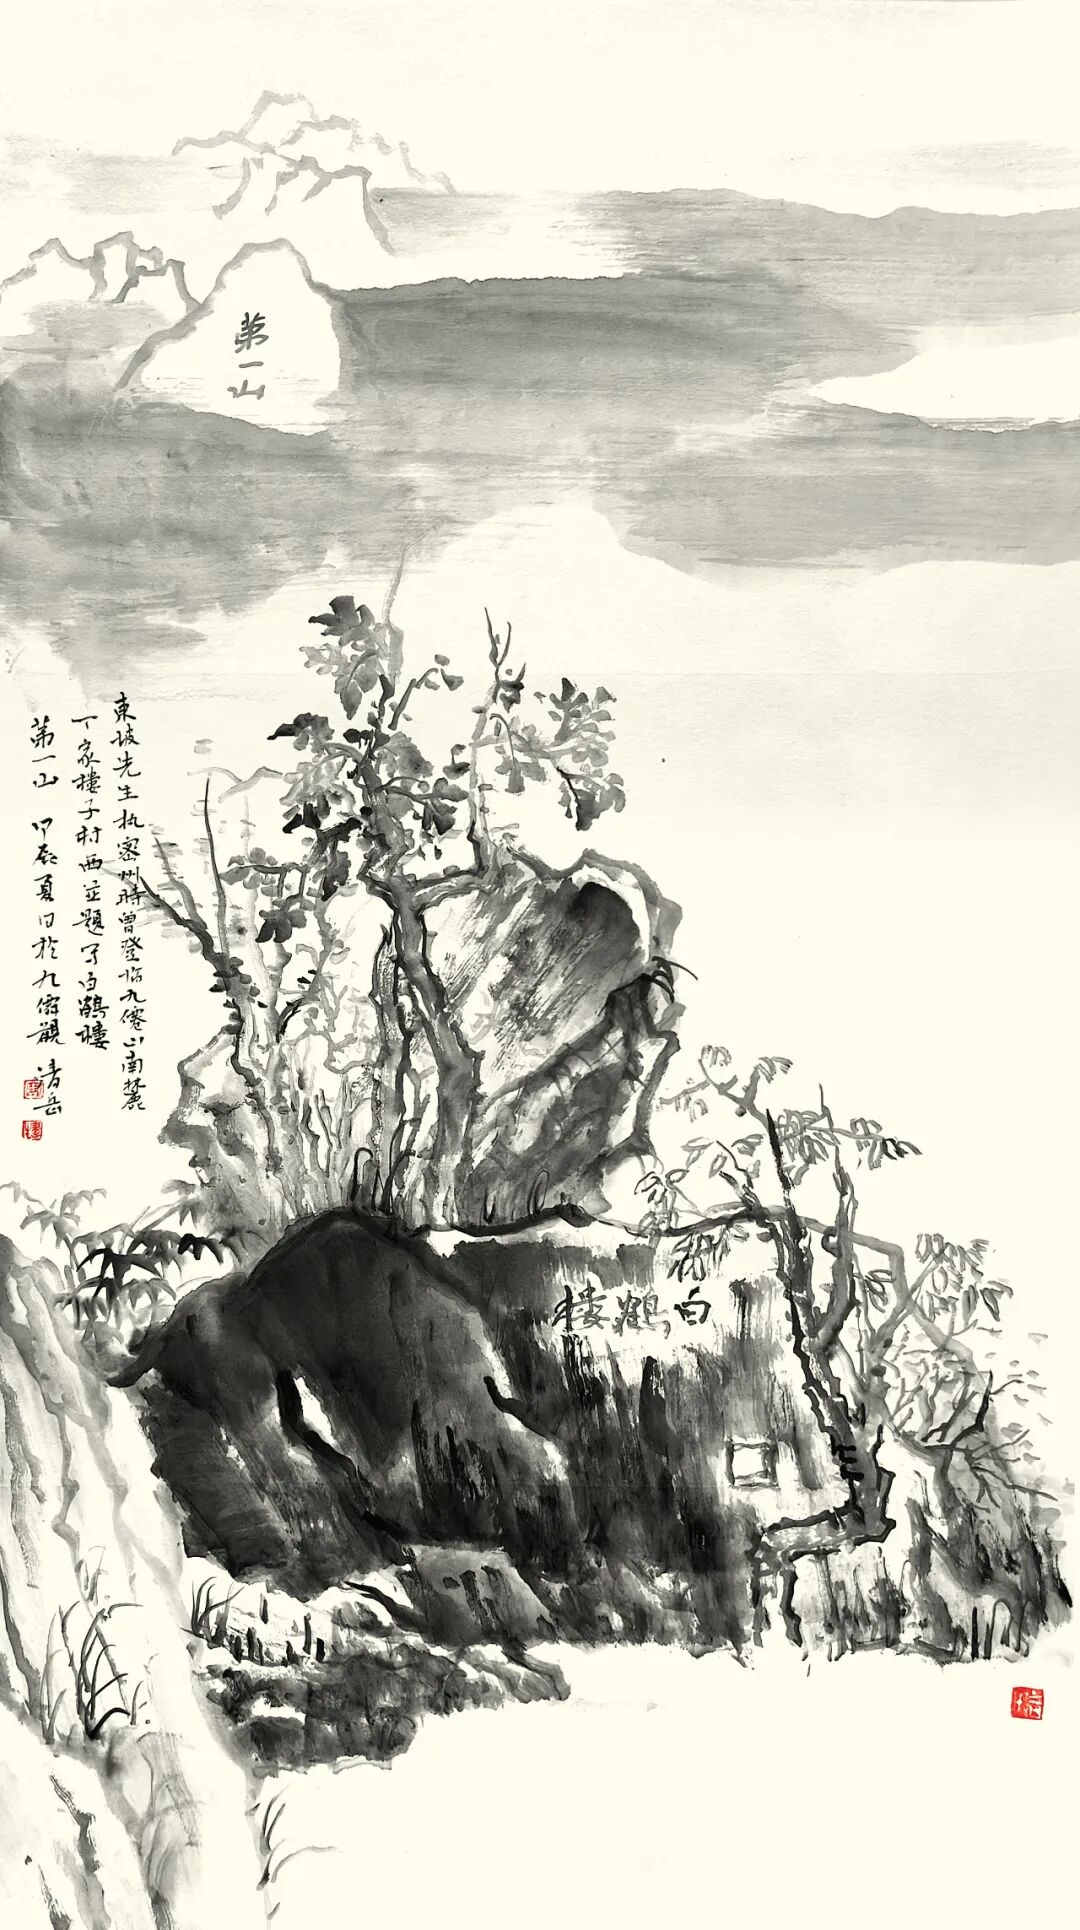 第一山
東坡先生执密州時曾登临九僊山南麓
丁家樓子村西並題写白鶴樓
第一山 甲辰夏日於九僊觀 清岳
白鶴楼